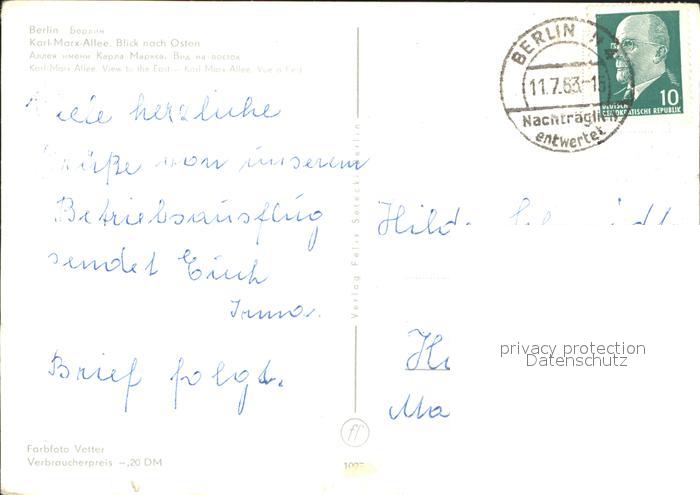 Berlin Берлин
Karl-Marx-Allee. Blick nach Osten
Аллея имени Карла Маркса. Вид на восток
Karl Marx Allee. View to the East — Karl Marx Allee. Vue à l'est
BERLIN
11.7.63-15
Nachträglich
entwertet
10
DEUTSCHE
DEMOKRATISCHE REPUBLIK
Viele herzliche
Grüße von unserem
Betriebsausflug
sendet Euch
Irma.
Brief folgt.
Verlag Felix Setecki, Berlin
Hilde
Hi
Ma
privacy protection
Datenschutz
Farbfoto Vetter
Verbraucherpreis –,20 DM